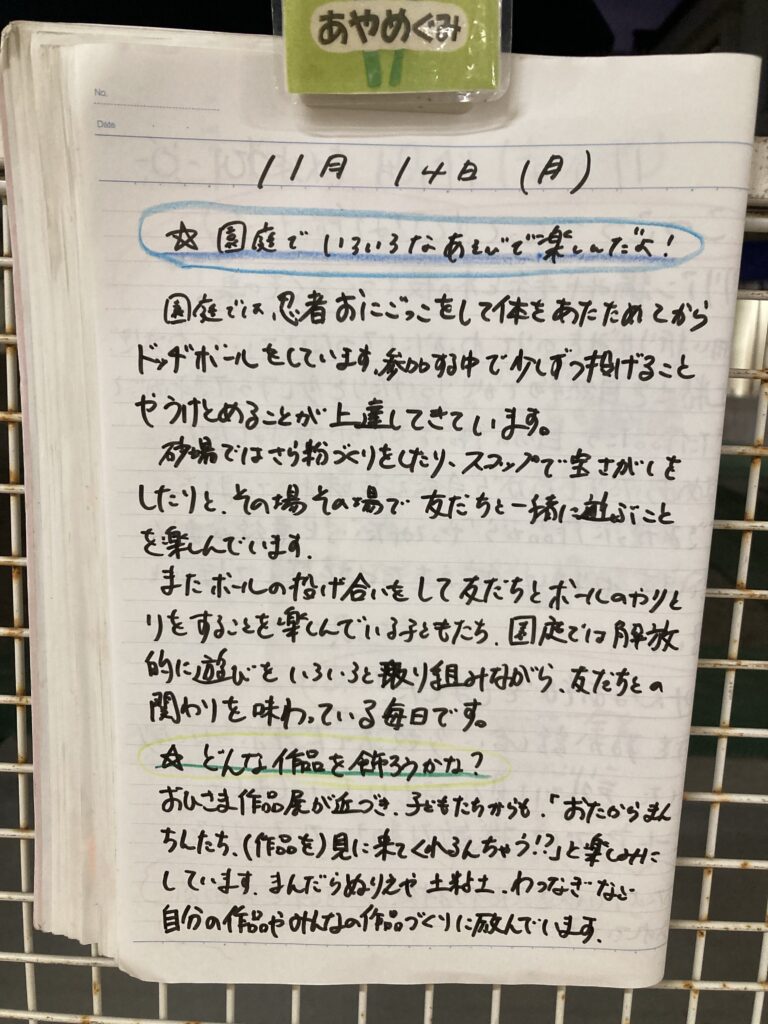 あやめぐみ
No.
Date
11月 14日 (月)
☆ 園庭で いろいろな あそびで 楽しんだよ!
園庭では、忍者おにごっこをして体をあたためてから
ドッヂボールをしています。参加する中で少しずつ投げること
やうけとめることが上達してきています。
砂場ではさら粉づくりをしたり、スコップで宝さがしを
したりと、その場その場で 友だちと一緒に遊ぶこと
を楽しんでいます。
またボールの投げ合いをして友だちとボールのやりと
りをすることを楽しんでいる子どもたち。園庭では解放
的に遊びをいろいろと取り組みながら、友だちとの
関わりを味わっている毎日です。
☆ どんな作品を飾ろうかな?
おひさま作品展が近づき、子どもたちからも、「おたからまん
ちんたち、(作品を)見に来てくれるんちゃう!?」と楽しみに
しています。まんだらぬりえや 土粘土、わっなぎなど
自分の作品やみんなの作品づくりに励んでいます。